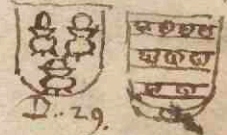 D.. 29.